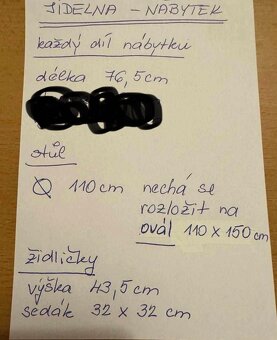 JIDELNA - NABYTEK
každý díl nábytku
délka 76,5cm
stůl
⌀ 110cm nechá se
rozložit na
ovál 110 x 150cm
židličky
výška 43,5 cm
sedák 32 x 32 cm